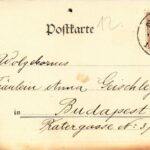 12.
Postkarte
Wolgebornes
Fräulein Anna Geischle
in
Budapest
Katergasse No 3